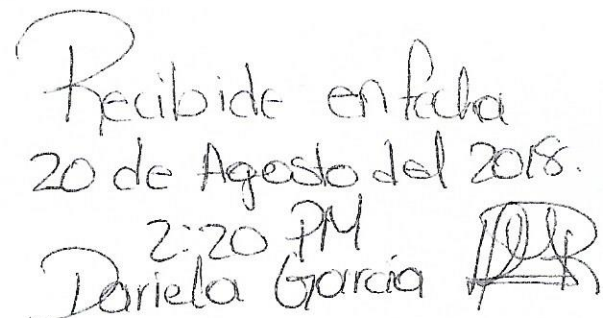 Recibido en fecha
20 de Agosto del 2018.
2:20 PM
Dariela García